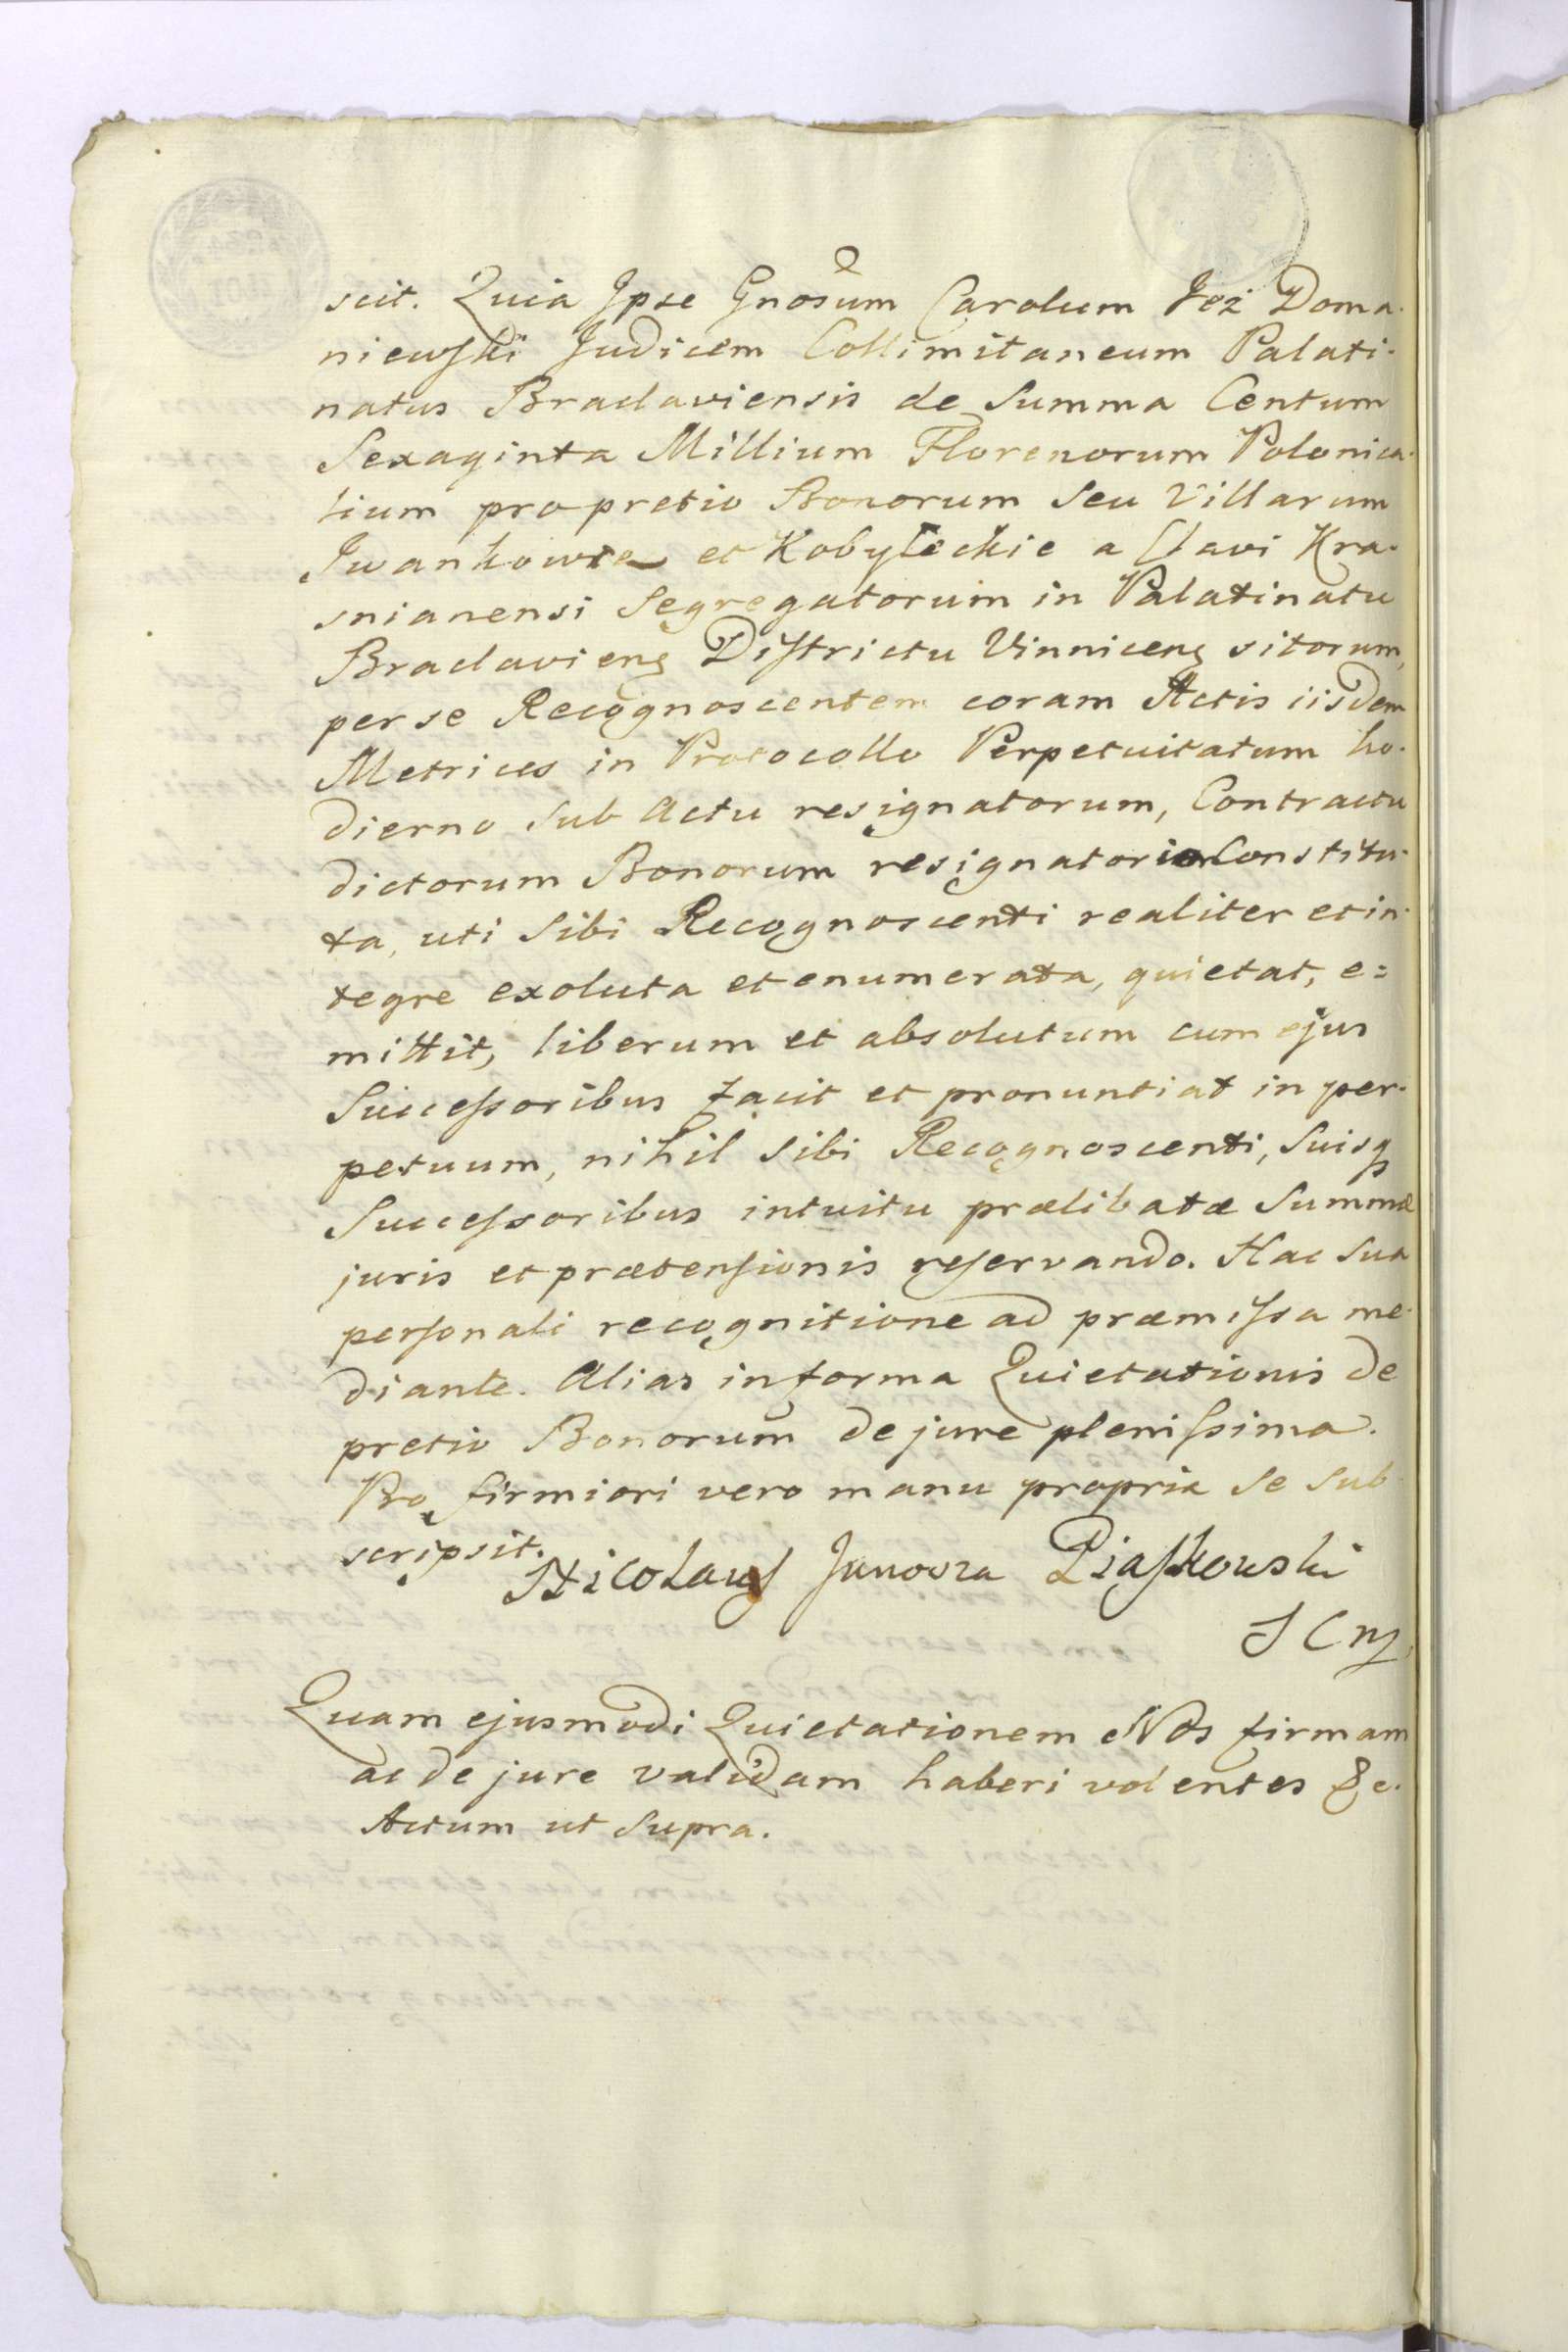 scit. Quia Ipse Gnosum Carolum Jeż Doma-
niewski Judicem Collimitaneum Palati-
natus Braclaviensis de Summa Centum
Sexaginta Millium Florenorum Polonica-
lium pro pretio Bonorum seu Villarum
Iwankowce et Kobyleckie a Clavi Kra-
snianensi Segregatorum in Palatinatu
Braclavieng Districtu Vinniceng sitorum,
per se Recognoscentem coram Actis iisdem
Metrices in Protocollo Perpetuitatum ho-
dierno sub Actu resignatorum, Contractu
dictorum Bonorum resignatorio Constitu-
ta, uti Sibi Recognoscenti realiter et in-
tegre exoluta et enumerata, quietat, e=
mittit, liberum et absolutum cum ejus
Successoribus facit et pronuntiat in per-
petuum, nihil sibi Recognoscenti, Suisq
Successoribus intuitu prælibatæ Summæ
juris et prætensionis reservando. Hac Sua
personali recognitione ad præmissa me-
diante. Alias in forma Quietationis de
pretio Bonorum de jure plenissima.
Pro firmiori vero manu propria se sub-
scripsit.
Nicolaus Junosza Piaskowski
Quam ejusmodi Quietationem Nos firmam
ac de jure validam haberi volentes &c.
Actum ut Supra.